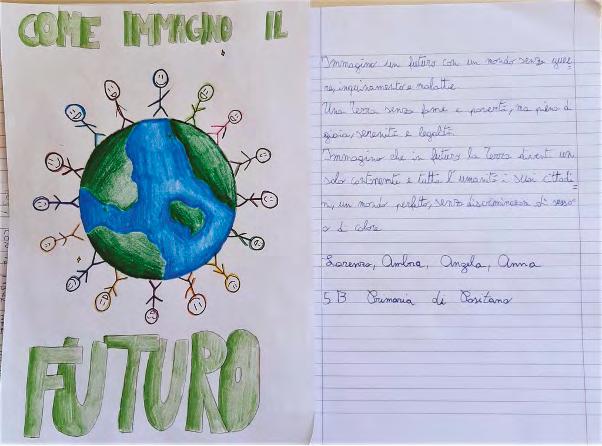 COME IMMAGINO IL
FUTURO
Immagino un futuro con un mondo senza guer=
re, inquinamento e malattie.
Una Terra senza fame e povertà, ma piena di
gioia, serenità e legalità.
Immagino che in futuro la Terra diventi un
solo continente e tutta l'umanità i suoi cittadi=
ni, un mondo perfetto, senza discriminazioni di sesso
o di colore
Lorenzo, Ambra, Angela, Anna
5B Primaria di Positano